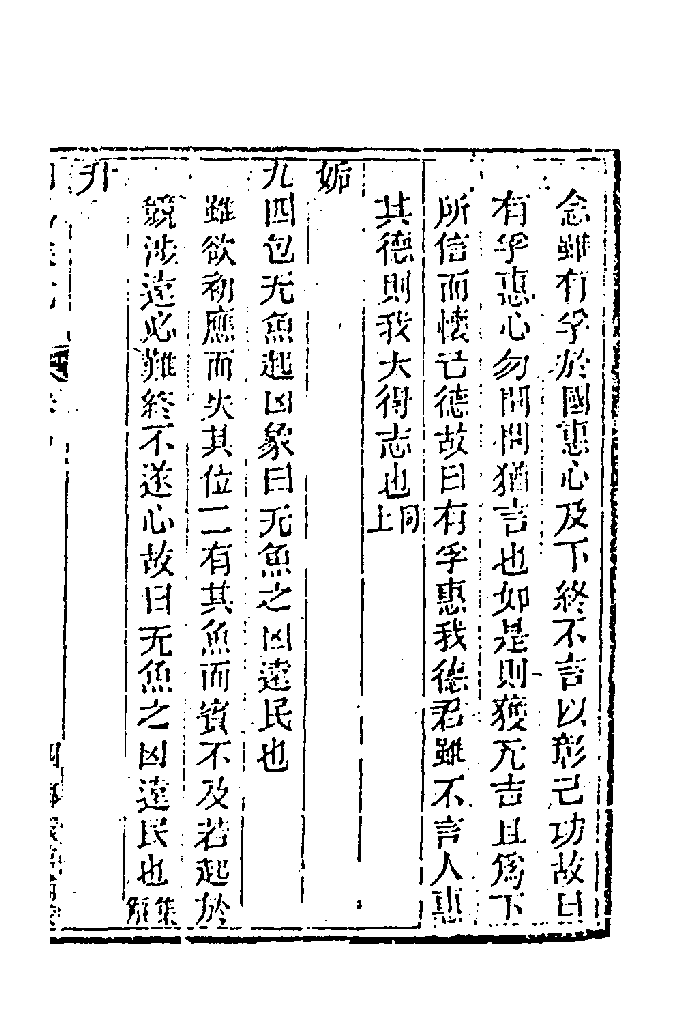 念雖有孚於國惠心及下終不言以彰己功故曰
有孚惠心勿問問猶言也如是則獲元吉且為下
所信而懷己德故曰有孚惠我德君雖不言人惠
其德則我大得志也同上
姤
九四包无魚起凶象曰无魚之凶遠民也
雖欲初應而失其位二有其魚而賓不及若起於
競涉遠必難終不遂心故曰无魚之凶遠民也集
升